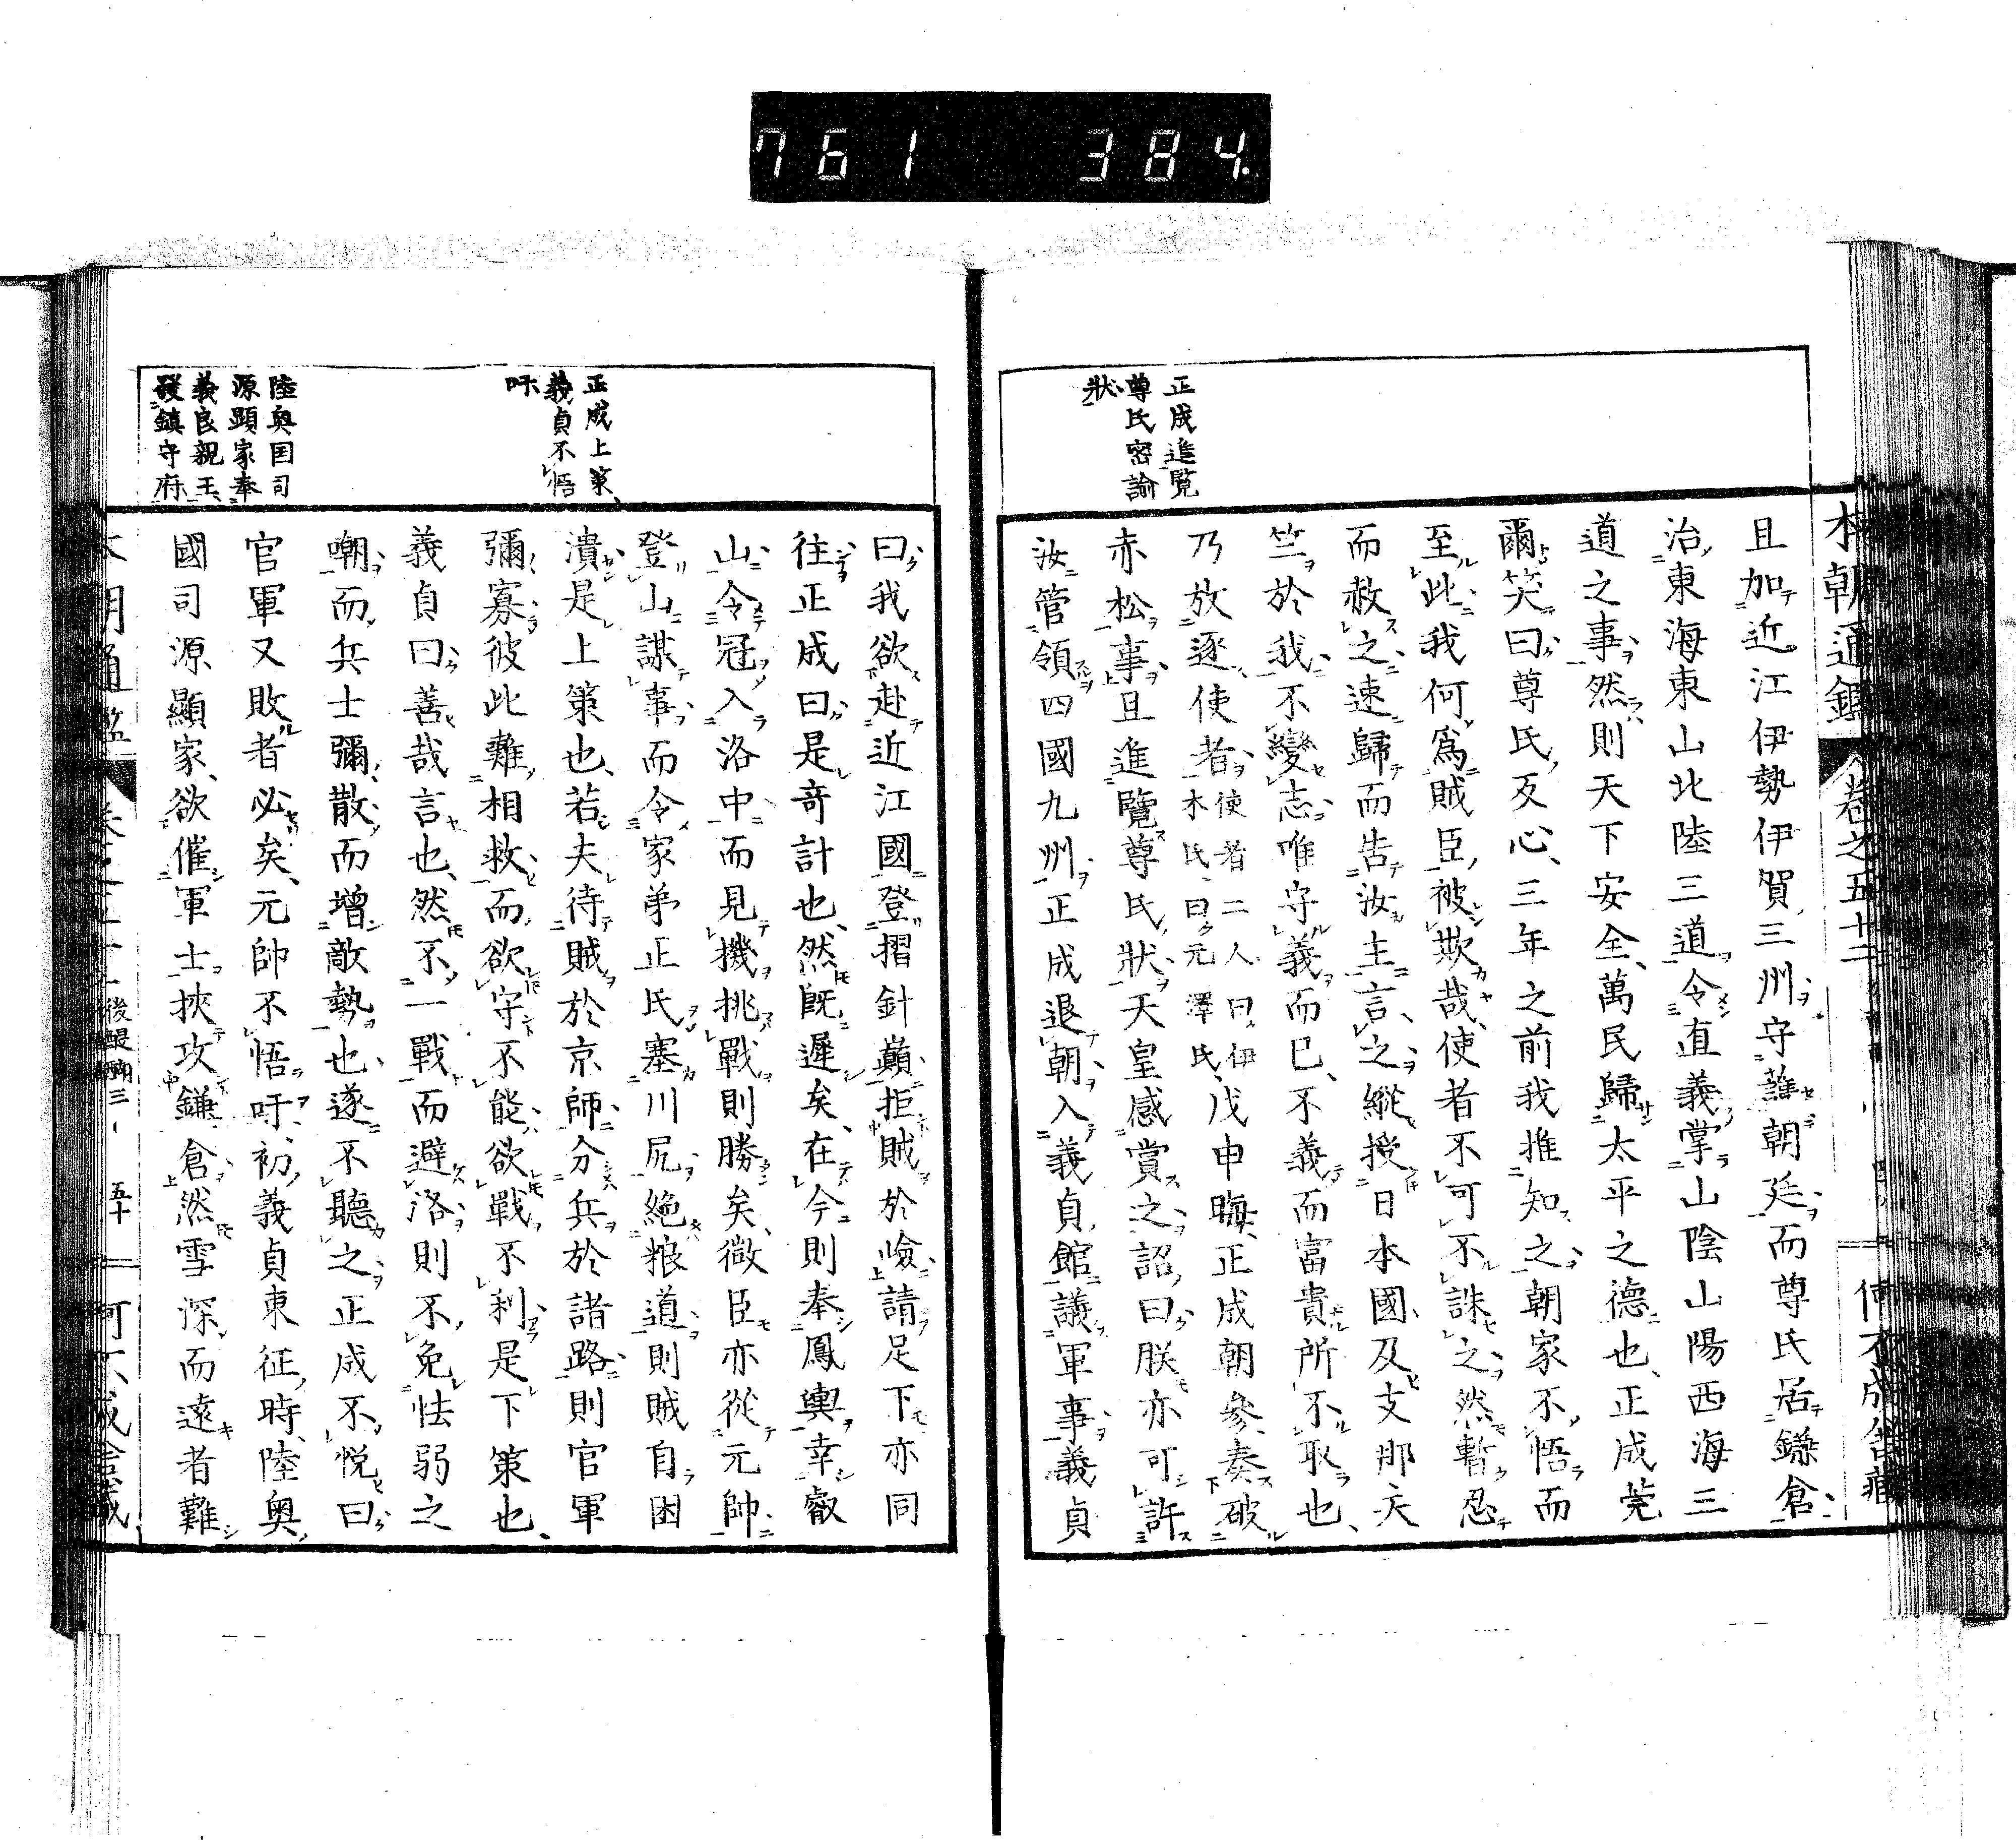 761 384.
本朝通鑑 卷之五十二
正成進覽
尊氏密諭
狀
且加近江伊勢伊賀三州守護朝廷而尊氏居鎌倉
治東海東山北陸三道令直義掌山陰山陽西海三
道之事然則天下安全萬民歸太平之德也正成莞
爾笑曰尊氏反心三年之前我推知之朝家不悟而
至此我何爲賊臣被欺哉使者不可不誅之然暫忍
而赦之速歸而告汝主言之縱授日本國及支那天
竺於我不變志唯守義而已不義而富貴所不取也
乃放逐使者使者二人曰伊木氏曰元澤氏戊申晦正成朝參奏破
赤松事且進覽尊氏狀天皇感賞之詔曰朕亦可許
汝管領四國九州正成退朝入義貞館議軍事義貞
正成上策
義貞不悟
吁
陸奥国司
源顯家奉
義良親王
發鎮守府
曰我欲赴近江國登摺針巓拒賊於嶮請足下亦同
往正成曰是竒計也然既遲矣在今則奉鳳輿幸叡
山令冠入洛中而見機挑戰則勝矣徵臣亦從元帥
登山謀事而令家弟正氏塞川尻絶粮道則賊自困
潰是上策也若夫待賊於京師分兵於諸路則官軍
彌寡彼此難相救而欲守不能欲戰不利是下策也
義貞曰善哉言也然不一戰而避洛則不免怯弱之
嘲而兵士彌散而增敵勢也遂不聽之正成不悅曰
官軍又敗者必矣元帥不悟吁初義貞東征時陸奥
國司源顯家欲催軍士挾攻鎌倉然雪深而遠者難
後醍醐三 五十